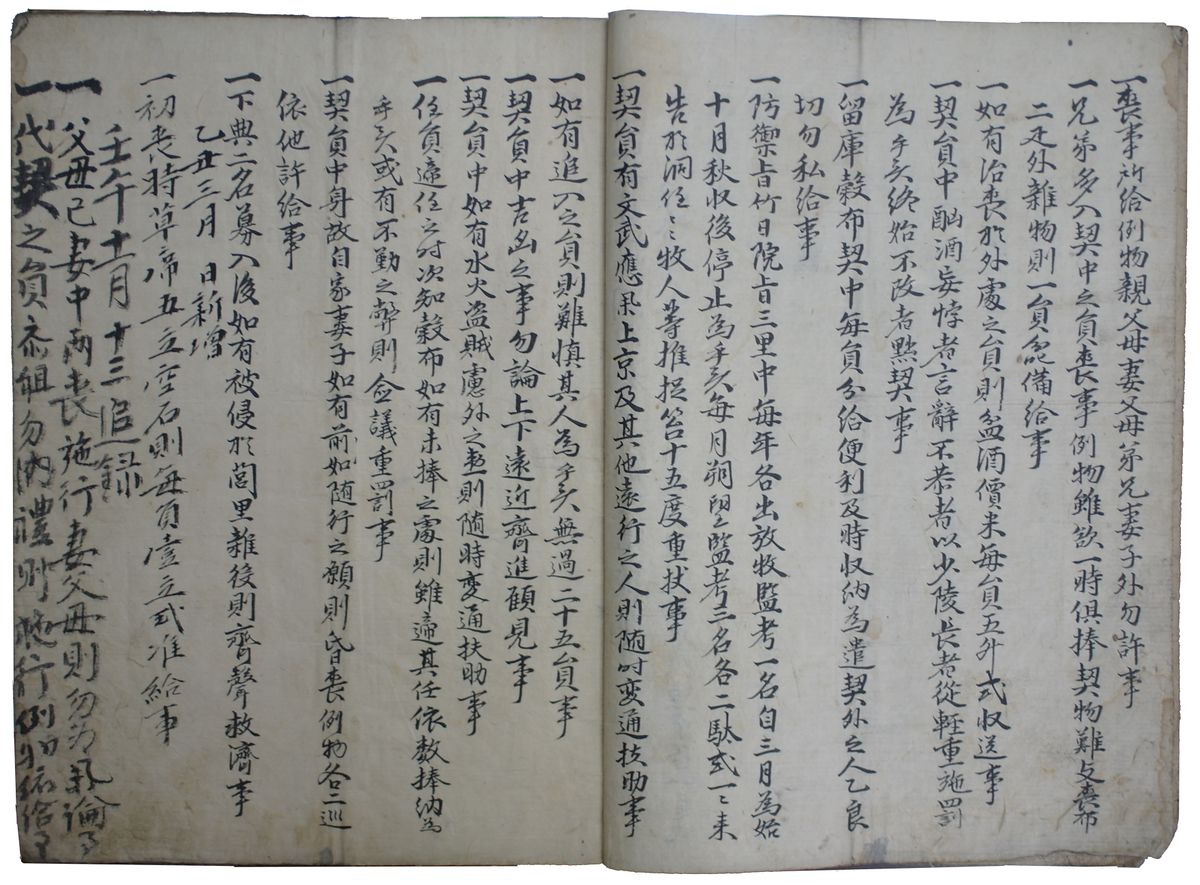 一喪事所給例物親父母妻父母弟兄妻子外勿許事
一兄弟多入契中之員喪事例物雖欲一時俱捧契物難与喪布
二疋外雜物則一員備給事
一如有治喪於外處之員則盆酒價米每員五升式収送事
一契員中酗酒妄悖者言辭不恭者以少陵長者從輕重施罰
為乎矣終始不改者黜契事
一留庫穀布契中每員分給便利及時収納為遣契外之人乙良
切勿私給事
一防禦旨竹日院旨三里中每年各出放牧監考一名自三月為始
十月秋収後停止為乎矣每月朔監考三名各二駄式一〻未
告於洞任〻牧人等推捉笞十五度重扙事
一契員有文武應果上京及其他遠行之人則随时変通扶助事
一如有追入之員則難慎其人為乎矣無過二十五員事
一契員中吉凶之事勿論上下遠近齊進顧見事
一契員中如有水火盜賊慮外之患則随時変通扶助事
一任員遞任之时次知穀布如有未捧之處則雖遞其任依数捧納為
乎矣或有不勤之弊則僉議重罰事
一契員中身故自家妻子如有前如随行之願則昏喪例物各二巡
依他許給事
一下典二名募入後如有被侵於閭里雜後則齊聲救濟事
乙丑三月 日新增
一初喪時草席五立空石則每員壹立式准給事
壬午十二月十三追録
一父母己妻中兩喪施行妻父母則勿為論事
一代契之員忝組勿納禮則施行例依給事